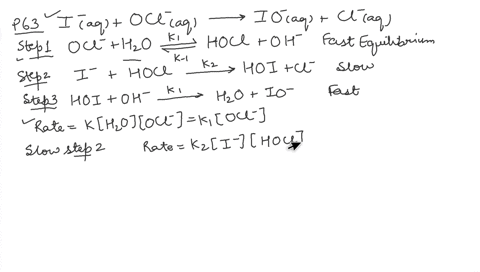 P63) ✓ I⁻(aq) + OCl⁻(aq) ⟶ IO⁻(aq) + Cl⁻(aq)
Step1 OCl⁻ + H₂O ⇌ K₁ K₋₁ HOCl + OH⁻ Fast Equilibrium
Step2 I⁻ + HOCl —K₂→ HOI + Cl⁻ Slow
Step3 HOI + OH⁻ —K₁→ H₂O + IO⁻ Fast
✓ Rate = K[H₂O][OCl⁻] = K₁[OCl⁻]
Slow step2 Rate = K₂[I⁻][HOCl]